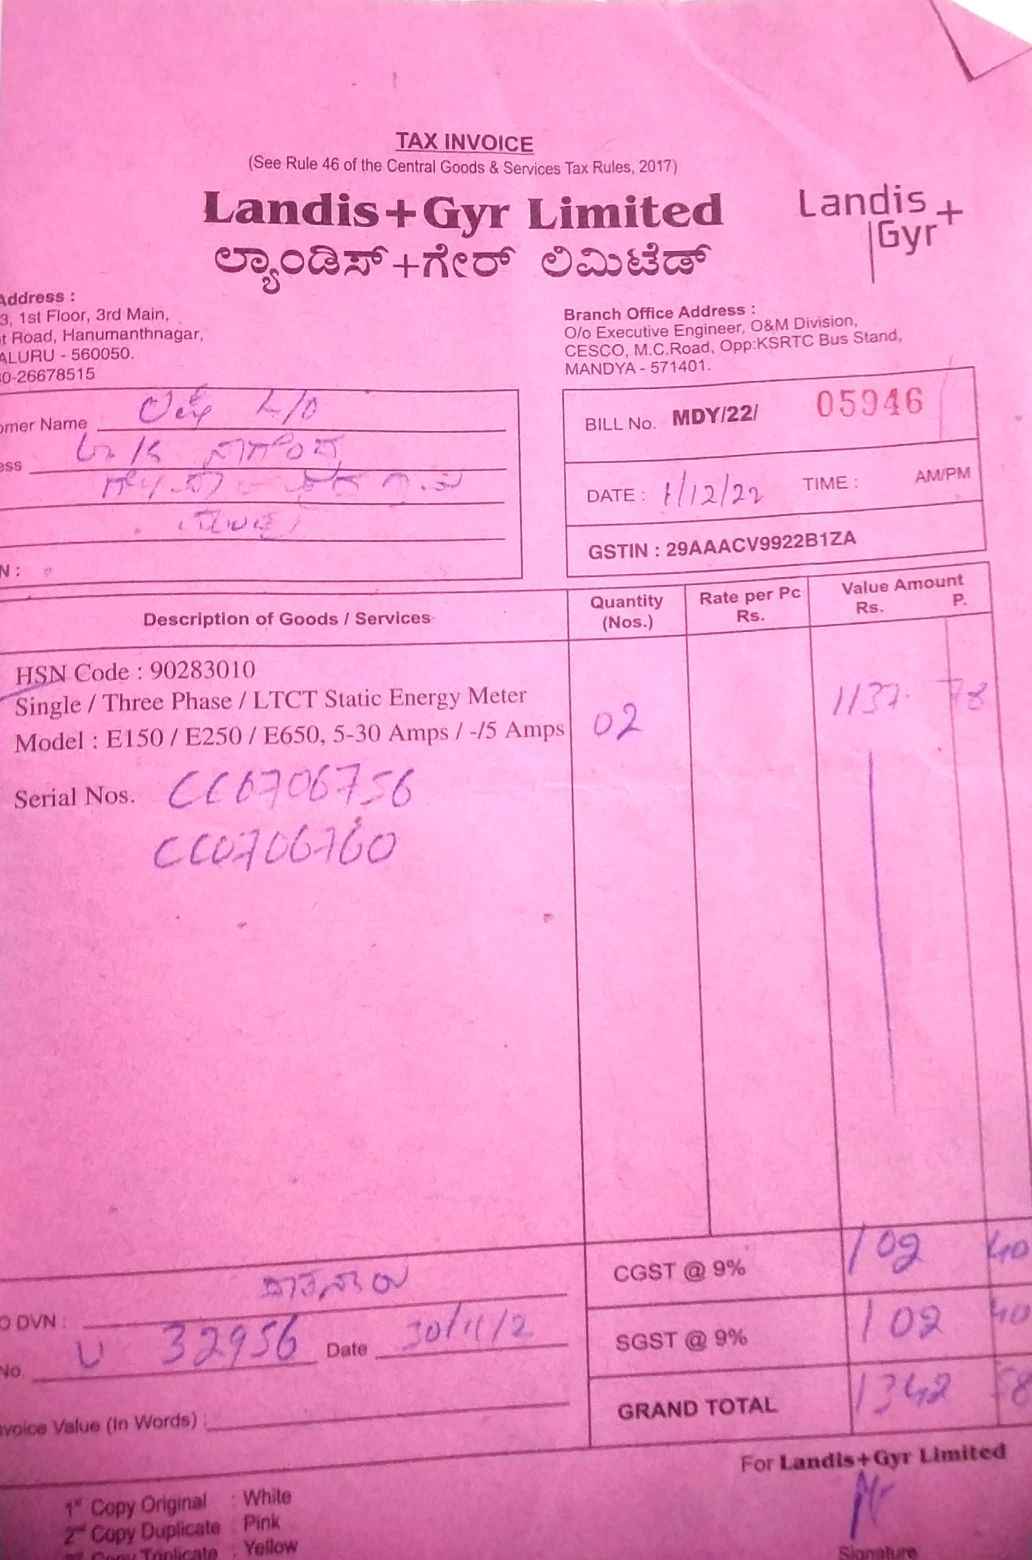 TAX INVOICE
(See Rule 46 of the Central Goods & Services Tax Rules, 2017)
Landis+Gyr Limited
ಲ್ಯಾಂಡಿಸ್+ಗೇರ್ ಲಿಮಿಟೆಡ್
Landis+
Gyr
Address :
3, 1st Floor, 3rd Main,
t Road, Hanumanthnagar,
ALURU - 560050.
0-26678515
Branch Office Address :
O/o Executive Engineer, O&M Division,
CESCO, M.C.Road, Opp:KSRTC Bus Stand,
MANDYA - 571401.
omer Name
ess
N :
BILL No. MDY/22/ 05946
DATE : 1/12/22 TIME : AM/PM
GSTIN : 29AAACV9922B1ZA
Description of Goods / Services Quantity (Nos.) Rate per Pc Rs. Value Amount Rs. P.
HSN Code : 90283010
Single / Three Phase / LTCT Static Energy Meter
Model : E150 / E250 / E650, 5-30 Amps / -/5 Amps 02 1137. 78
Serial Nos. CC0706756
CC0706760
CGST @ 9% 102 40
O DVN :
SGST @ 9% 102 40
No. 32956 Date 30/11/2
GRAND TOTAL 1342 58
nvoice Value (In Words) :
For Landis+Gyr Limited
1st Copy Original : White
2nd Copy Duplicate : Pink
Copy Triplicate : Yellow
Signature